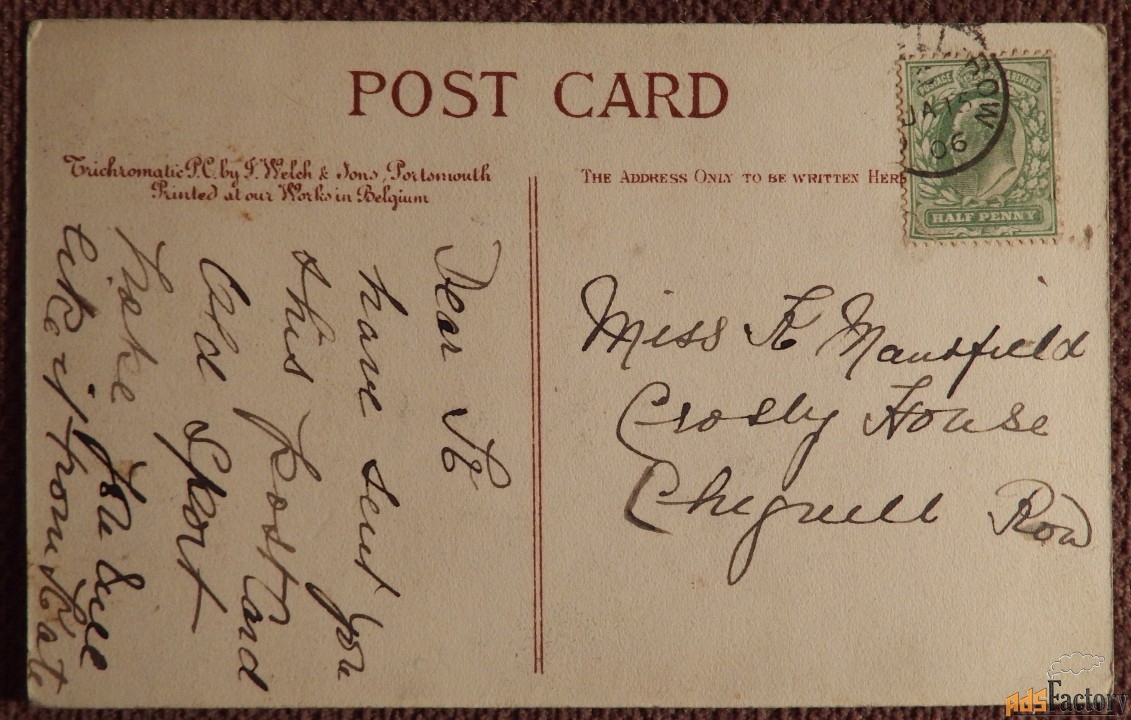 POST CARD
Trichromatic P.C. by J. Welch & Sons, Portsmouth
Printed at our Works in Belgium
THE ADDRESS ONLY TO BE WRITTEN HERE
POSTAGE & REVENUE
HALF PENNY
ROW
JA 15
06
Dear K
have sent you
this Post Card
Old Sport
hope you will
like it from Kate
Miss K Mansfield
Crosby House
Chigwell Row
AdsFactory